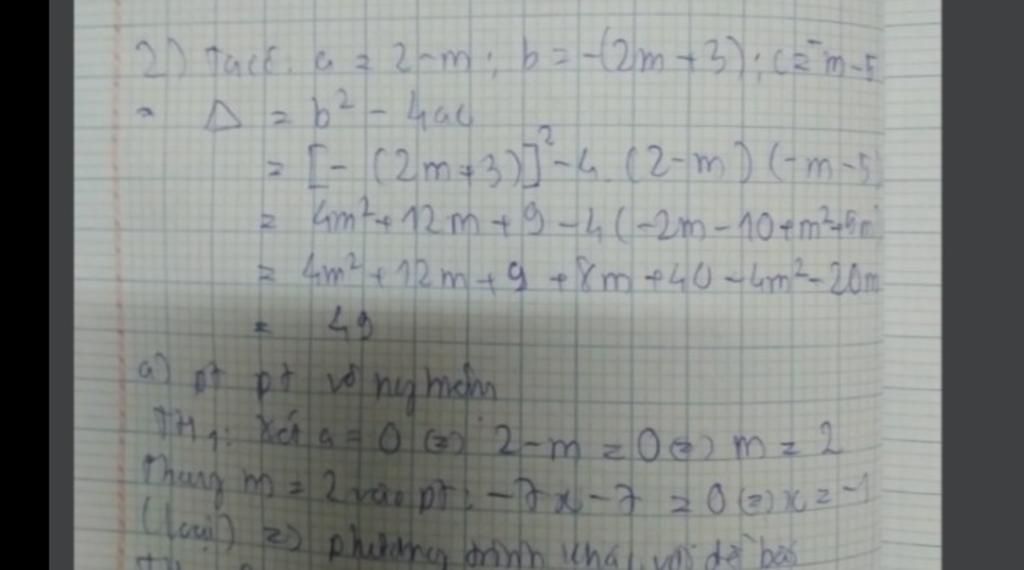 2) Ta có: a = 2-m; b = -(2m+3); c = -m-5
Δ = b² - 4ac
= [-(2m+3)]² - 4 (2-m) (-m-5)
= 4m² + 12m + 9 - 4(-2m - 10 + m² + 5m
= 4m² + 12m + 9 + 8m + 40 - 4m² - 20m
= 49
a) pt vô nghiệm
TH1: Xét a = 0 (=) 2-m = 0 (=) m = 2
Thay m = 2 vào pt: -7x - 7 = 0 (=) x = -1
(loại) => phương trình khác với đề bài